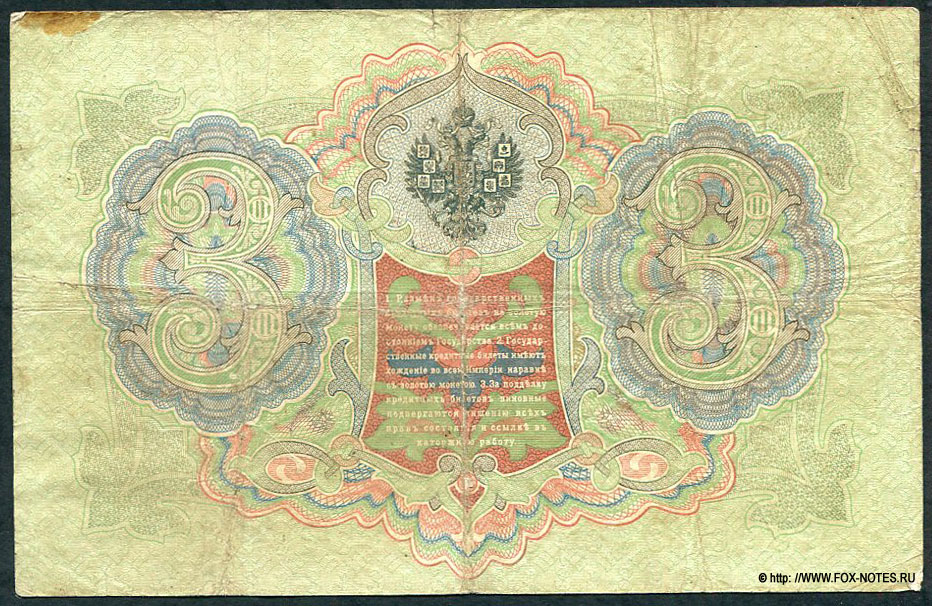 3 3
1. Размѣнъ государственныхъ
кредитныхъ билетовъ на золотую
монету обезпечивается всѣмъ до-
стояніемъ Государства. 2. Государ-
ственные кредитные билеты имѣютъ
хожденіе во всей Имперіи наравнѣ
съ золотою монетою. 3. За поддѣлку
кредитныхъ билетовъ виновные
подвергаются лишенію всѣхъ
правъ состоянія и ссылкѣ въ
каторжную работу.
© http: //WWW.FOX-NOTES.RU